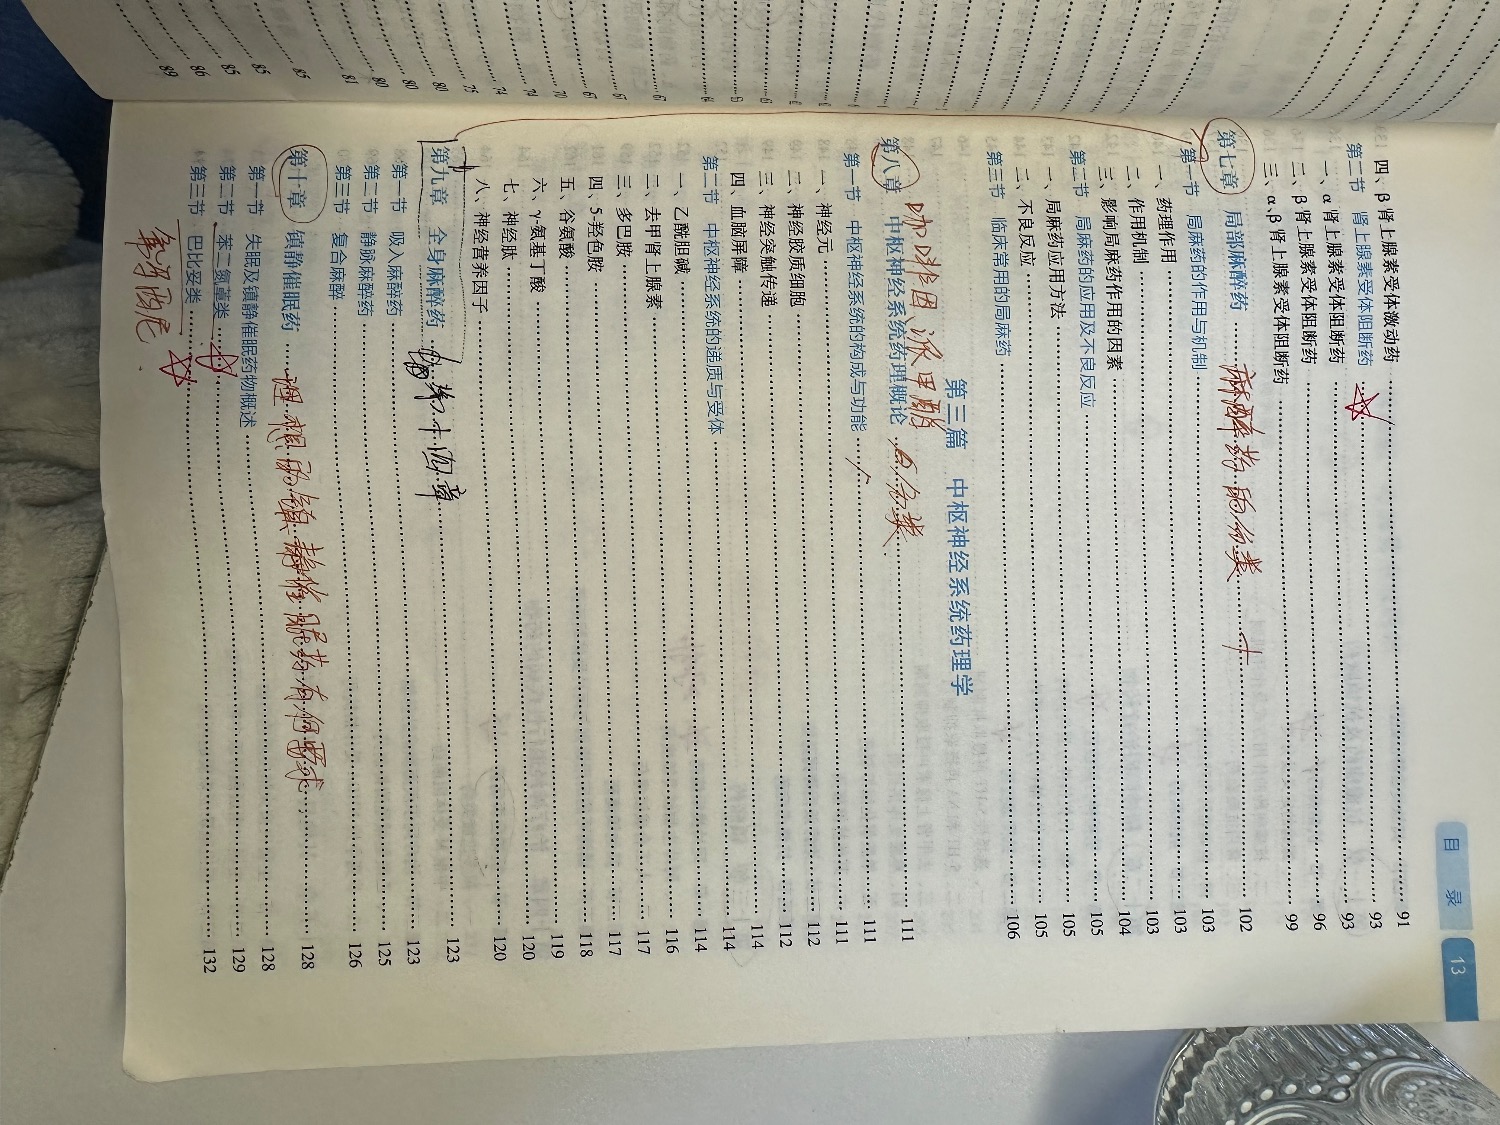 目 录 13
四、β 肾上腺素受体激动药 91
第二节 肾上腺素受体阻断药 93
一、α 肾上腺素受体阻断药 93
二、β 肾上腺素受体阻断药 96
三、α、β 肾上腺素受体阻断药 99
第七章 局部麻醉药 麻醉药的分类 102
第一节 局麻药的作用与机制 103
一、药理作用 103
二、作用机制 103
三、影响局麻药作用的因素 104
第二节 局麻药的应用及不良反应 105
一、局麻药应用方法 105
二、不良反应 105
第三节 临床常用的局麻药 106
第三篇 中枢神经系统药理学
第八章 中枢神经系统药理概论 111
第一节 中枢神经系统的构成与功能 111
一、神经元 111
二、神经胶质细胞 112
三、神经突触传递 112
四、血脑屏障 114
第二节 中枢神经系统的递质与受体 114
一、乙酰胆碱 114
二、去甲肾上腺素 116
三、多巴胺 117
四、5-羟色胺 117
五、谷氨酸 118
六、γ-氨基丁酸 119
七、神经肽 120
八、神经营养因子 120
第九章 全身麻醉药 123
第一节 吸入麻醉药 123
第二节 静脉麻醉药 125
第三节 复合麻醉 126
第十章 镇静催眠药 理想的镇静催眠药有何要求 128
第一节 失眠及镇静催眠药物概述 128
第二节 苯二氮䓬类 129
第三节 巴比妥类 132
75
80
80
80
81
85
85
85
86
89